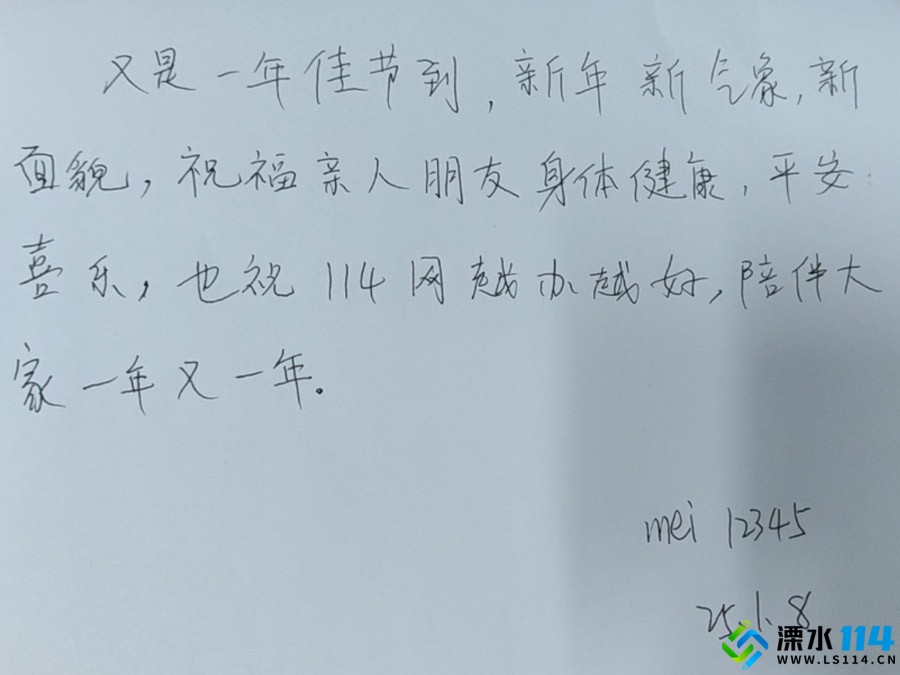 又是一年佳节到，新年新气象，新
面貌，祝福亲人朋友身体健康，平安
喜乐，也祝114网越办越好，陪伴大
家一年又一年。
mei 12345
25.1.8
溧水114
WWW.LS114.CN